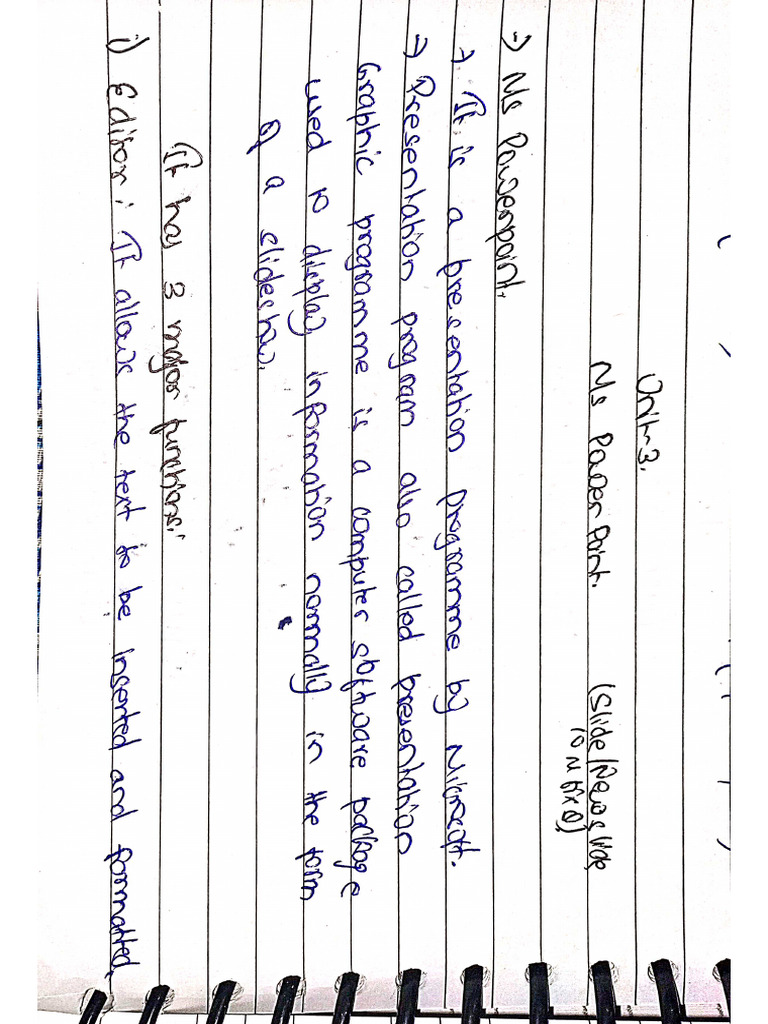 Unit-3.
Ms PowerPoint. (Slide/New slide,
→ Ms Powerpoint.
→ It is a presentation programme by Microsoft.
→ Presentation program also called presentation
Graphic programme is a computer software package
used to display information normally in the form
of a slideshow.
It has 3 major functions:
i) Editor: It allows the text to be inserted and formatted.